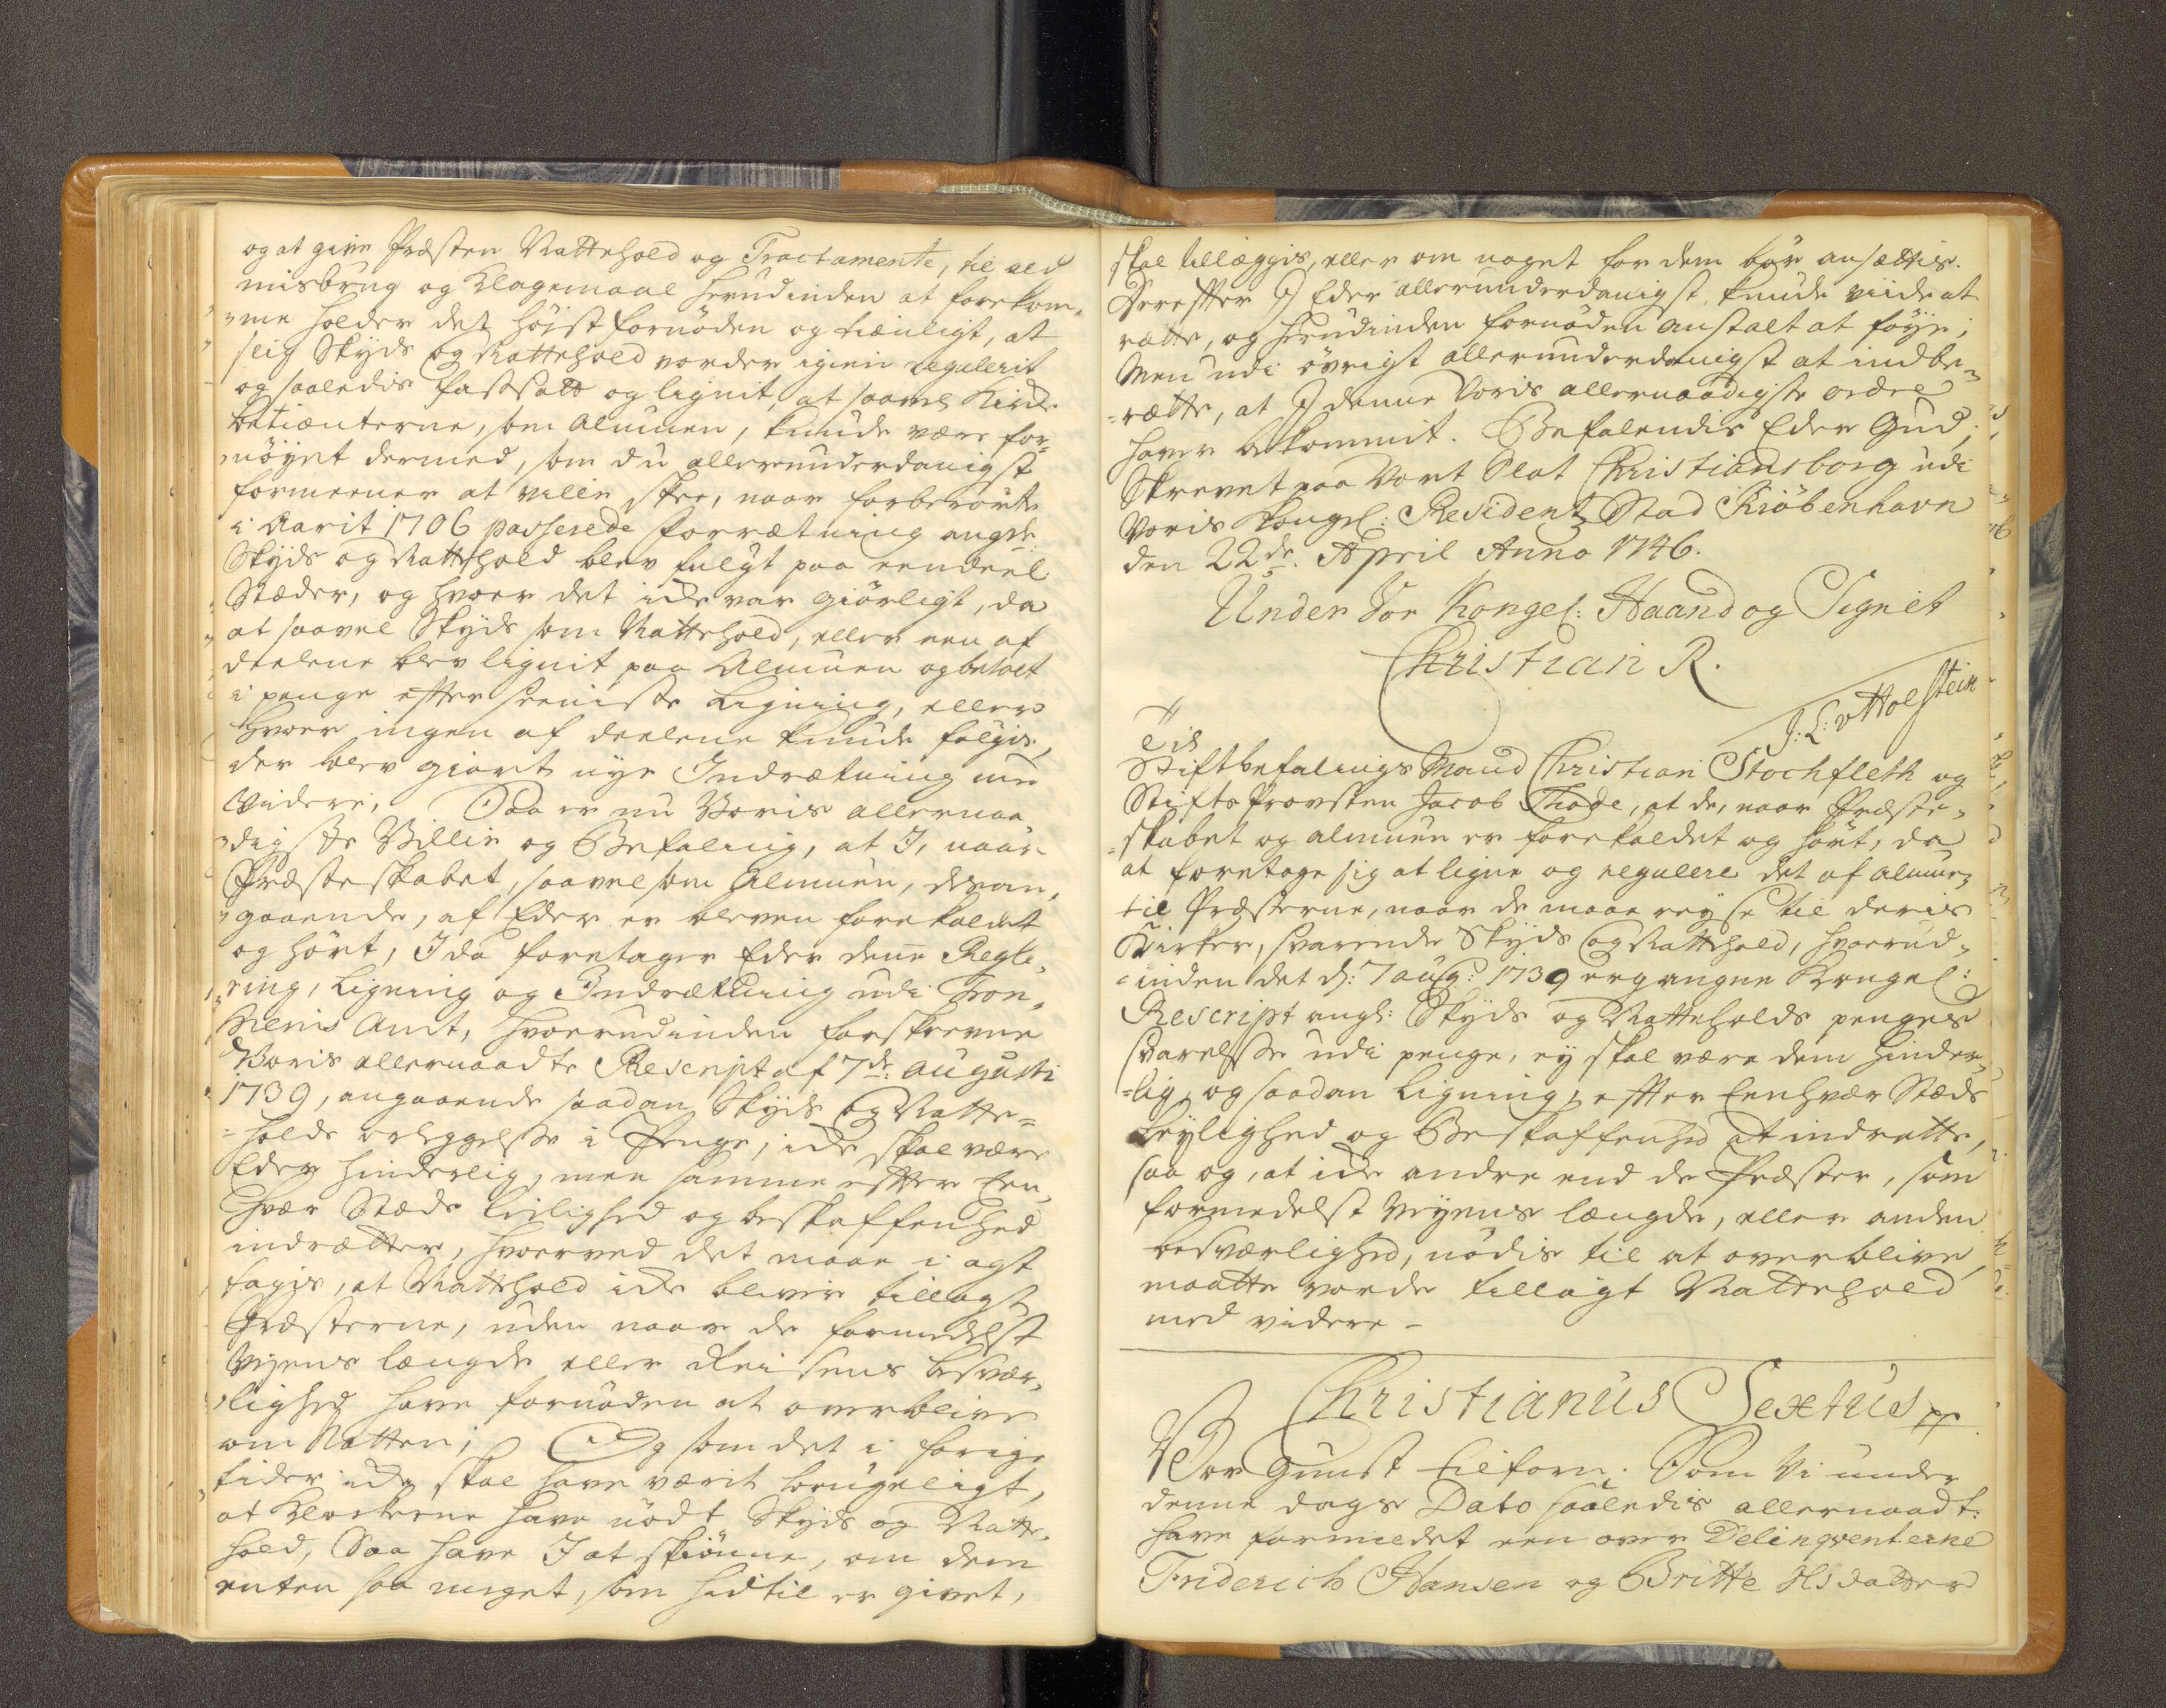 og at give Præsten Nattehold og Tractamente, til ald
misbrug og Klagemaal herudinden at forekom-
me holder det højst fornöden og tienligt, at
slig Skyds og Nattehold vorder igien regulerit
og saaledis fastsatt og lignit, at saavel Kirke
betiænterne, som Almuen, kunde være for-
nöyet dermed, som du allerunderdanigst
formeener at ville skee, naar forberörte
i Aarit 1706 passerede forrætning angde
Skyds og Nattehold blev fulgt paa eendeel
Stæder, og hvor det icke var giörligt, da
at saavel Skyds som Nattehold, eller een af
deelene blev lignit paa Almuen og betalt
i penge efter seeniste Ligning, eller
hvor ingen af deelene kunde følgis,
der blev giort nye Indrætning med
Videre, Saa er nu Voris allernaa-
digste Villie og Befaling, at I, naar
Præsteskabet, saavel som Almuen, desan-
gaaende, af Eder er bleven forekaldet
og hört, I da foretager Eder denne Regle-
ring, Ligning og Indrætning udi Tron-
hiems Amt, hvorudinden forskrevne
Voris allernaadte Rescript af 7de Augusti
1739, angaaende saadan Skyds og Natte-
holds erleggelse i Penge, icke skal være
Eder hinderlig, men samme efter Een-
hver Stæds leilighed og beskaffenhed
indrætter, hvorved det maae i agt
tagis, at Nattehold icke bliver tillagt
Præsterne, uden naar de formedelst
Veyens længde eller Reisens besvær-
lighed have fornöden at overblive
om Natten; Og som det i forige
tider icke skal have værit brugeligt,
at Klockerne have nödt Skyds og Natte-
hold, Saa have I at skiönne, om dem
enten saa meget, som hidtil er givet,
skal tillæggis, eller om noget for dem bör ansættis.
Derefter I Eder allerunderdanigst kunde viide at
rætte, og herudinden fornöden anstalt at föye;
Men udi övrigt allerunderdanigst at indbe-
rætte, at I denne Voris allernaadigste ordre
haver bekommit. Befalendis Eder Gud,
Skrevet paa Vort Slot Christiansborg udi
Voris Kongel: Residentz Stad Kiöbenhavn
den 22de April Anno 1746.
Under Vor Kongel: Haand og Signet
Christian R.
J: L: v Holstein
Til
Stiftbefalings Mand Christian Stochfleth og
Stifts Provsten Jacob Thode, at de, naar Præste-
skabet og almuen er forekaldet og hört, da
at foretage sig at ligne og regulere det af almuen
til Præsterne, naar de maae reyse til deris
Kirker, svarende Skyds og Nattehold, hvorud-
inden det d: 7 aug: 1739 ergangne Kongel:
Rescript angl: Skyds og Natteholds penges
svarelse udi penge, ey skal være dem hinder-
lig, og saadan Ligning, efter Eenhver Stæds
Leylighed og Beskaffenhed at indrette,
saa og, at icke andre end de Præster, som
formedelst Veyens længde, eller anden
besværlighed, nödis til at overblive,
maatte vorde tillagt Nattehold
med videre -
Christianus Sextus pp
Vor Gunst tilforn. Som Vi under
denne dags Dato saaledis allernaadt:
have formeldet een over Delinqventerne
Friderich Hansen og Britte Olsdatter